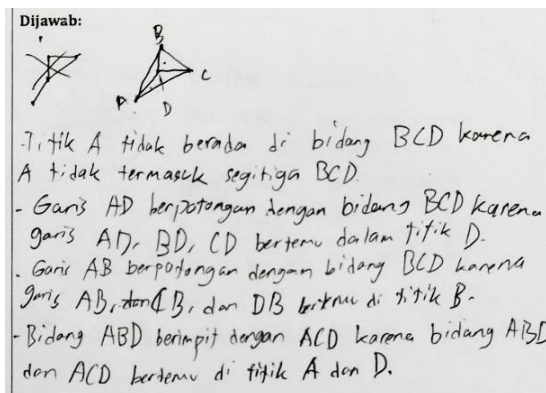 Dijawab:
B
C
A
D
-Titik A tidak berada di bidang BCD karena
A tidak termasuk segitiga BCD.
- Garis AD berpotongan dengan bidang BCD karena
garis AD, BD, CD bertemu dalam titik D.
. Garis AB berpotongan dengan bidang BCD karena
garis AB, dan CB, dan DB bertemu di titik B.
-Bidang ABD berimpit dengan ACD karena bidang ABD
dan ACD bertemu di titik A dan D.